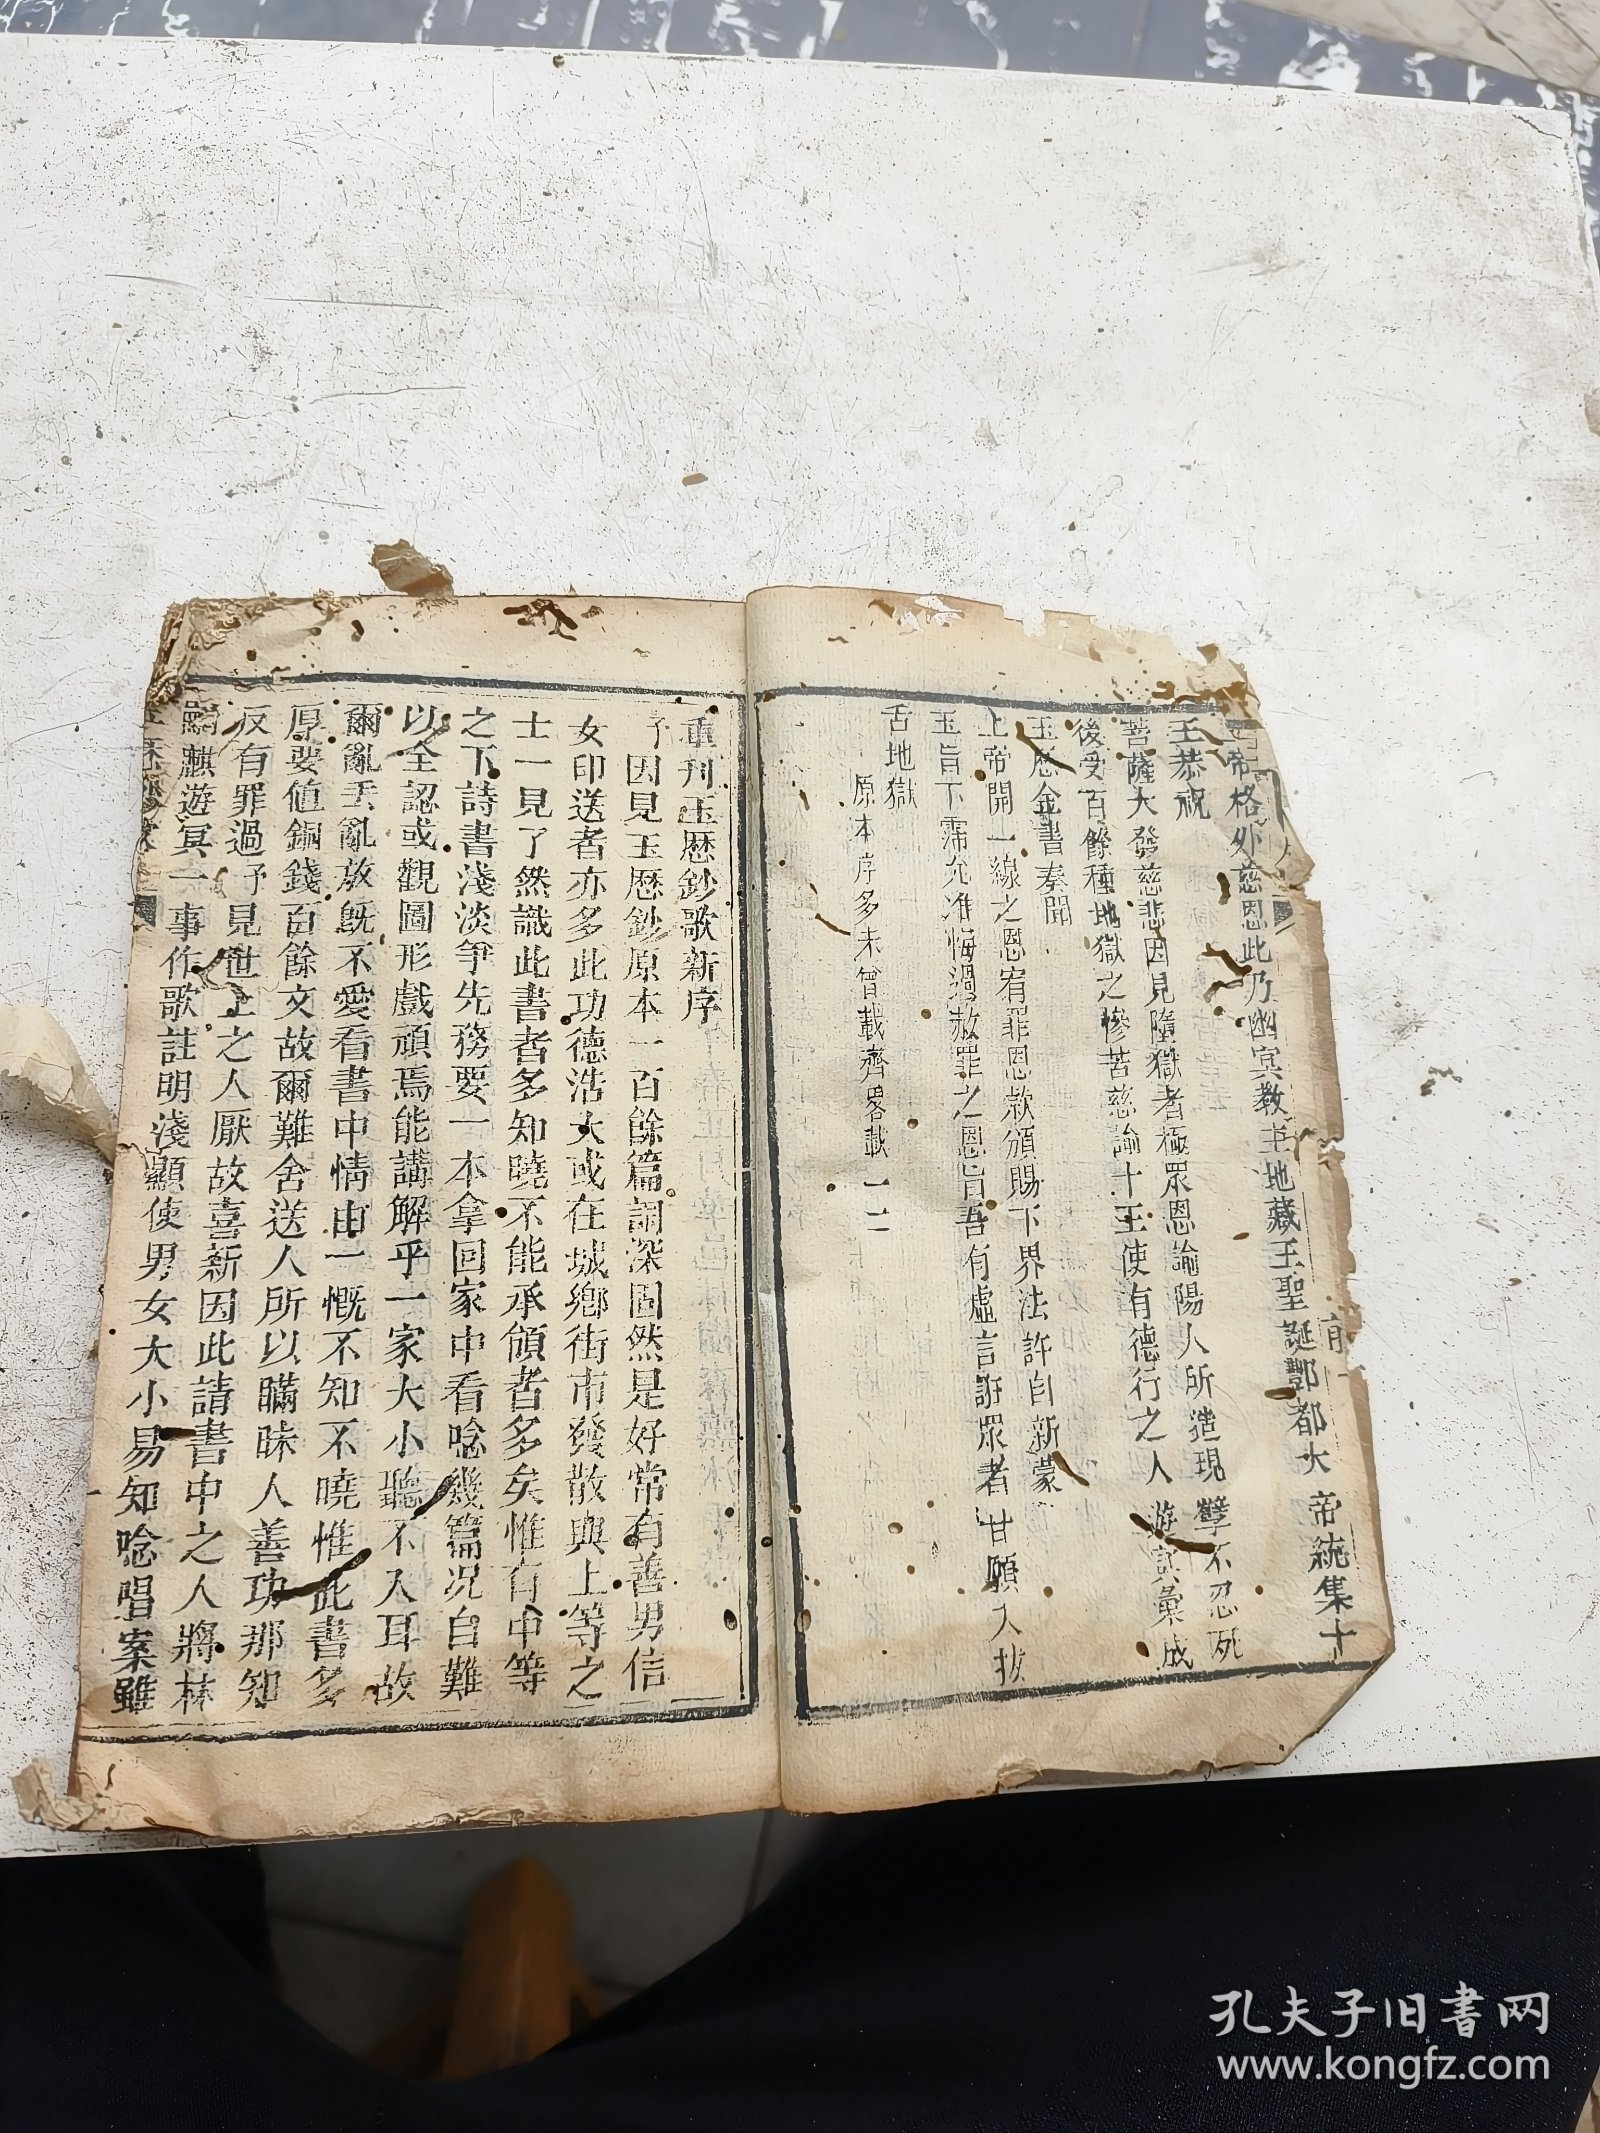 帝格外慈恩此乃幽冥教主地藏王聖誕酆都大帝統集十
王恭祝
菩薩大發慈悲因見墮獄者極眾恩諭陽人所造現孽不忍死
後受百餘種地獄之慘苦慈諭十王使有德行之人游冥彙成
玉歷金書奏聞
上帝開一線之恩宥罪恩款頒賜下界法許自新蒙
玉旨下霈允准悔過赦罪之恩旨吾有虛言誑眾者甘願入拔
舌地獄
原本序多未曾載齊畧載一二
重刊玉歷鈔歌新序
予因見玉歷鈔原本一百餘篇詞深固然是好常有善男信
女印送者亦多此功德浩大或在城鄉街市發散與上等之
士一見了然識此書者多知曉不能承領者多矣惟有中等
之下詩書淺淡爭先務要一本拿回家中看唸幾篇况自難
以全認或觀圖形戲頑焉能講解乎一家大小聽不入耳故
爾亂丟亂放旣不愛看書中情由一慨不知不曉惟此書多
厚要值銅錢百餘文故爾難舍送人所以瞞昧人善功那知
反有罪過予見世上之人厭故喜新因此請書中之人將林
嗣麒遊冥一事作歌註明淺顯使男女大小易知唸唱案雖
孔夫子旧书网
www.kongfz.com